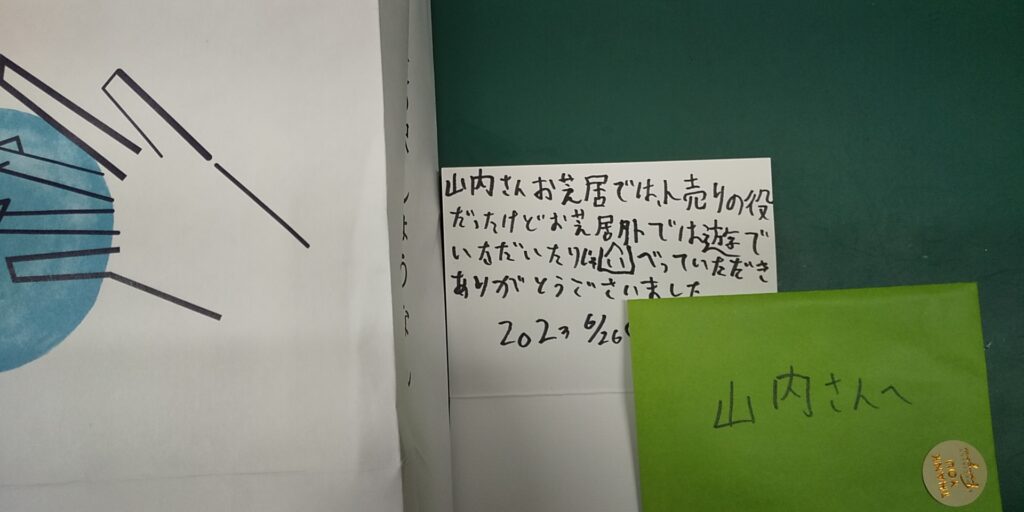 山内さんお芝居では、人売りの役
だったけどお芝居外では遊で
いただいたりしゃべっていただき
ありがとうございました
2023 6/26
山内さんへ
THANK YOU